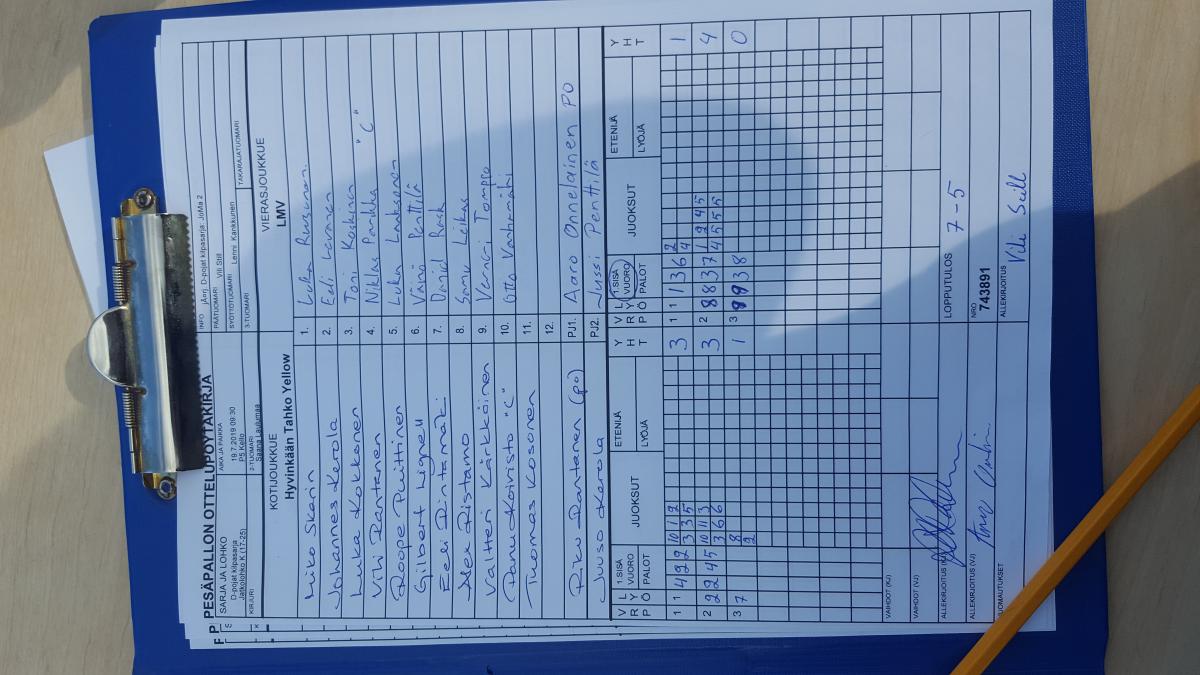 PESÄPALLON OTTELUPÖYTÄKIRJA
SARJA JA LOHKO
D-pojat kilpasarja
Jatkolohko K (17-25)
AIKA JA PAIKKA
19.7.2019 09:30
P5 Kello
INFO jÄorj. D-pojat kilpasarja: JoMa 2
PÄÄTUOMARI Vili Still
SYÖTTÖTUOMARI Lenni Kankkunen
KIRJURI
2-TUOMARI
Saana Laulumaa
3-TUOMARI
TAKARAJATUOMARI
KOTIJOUKKUE
Hyvinkään Tahko Yellow
VIERASJOUKKUE
LMV
Miko Skarin 1. Luka Ruusunen
Johannes Kerola 2. Eeli Levanen
Luka Kokkonen 3. Toni Koskinen
Vili Rantanen 4. Niklas Pankka "C"
Roope Puittinen 5. Luka Laaksonen
Gilbert Lignell 6. Väinö Penttilä
Eeli Rintamäki 7. Daniel Rask
Alex Ristamo 8. Samu Leikas
Valtteri Kärkkäinen 9. Venci Tomppo
Panu Koivisto "C" 10. Otto Vaahtmäki
Thomas Kosonen 11.
12.
Riku Rantanen (po) PJ1. Aaro Onnelainen PO
Juuso Kerola PJ2. Jussi Penttilä
V R L Y P Ö 1.SISÄ VUORO PALOT JUOKSUT ETENIJÄ LYÖJÄ Y H T
V R L Y P Ö 1.SISÄ VUORO PALOT JUOKSUT ETENIJÄ LYÖJÄ Y H T
1 1 4 2 2 10 1 2 3 3 5 3
1 1 1 3 6 2 4 1
2 2 2 4 5 10 11 3 3 6 6 3
2 8 8 3 7 1 2 4 5 4 5 5 5 4
3 7 8 2 1
3 8 9 3 8 0
VAIHDOT (KJ)
VAIHDOT (VJ)
ALLEKIRJOITUS (KJ)
LOPPUTULOS 7-5
ALLEKIRJOITUS (VJ)
NRO
743891
HUOMAUTUKSET
ALLEKIRJOITUS
Vili Still